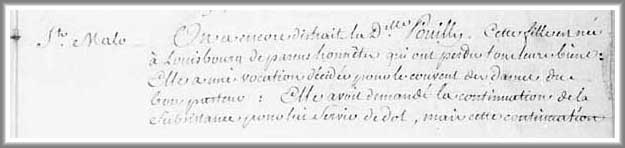 St. Malo — On a encore distrait la Dlle Pouilly. Cette fille est née
à Louisbourg de parens honnêtes qui ont perdu tous leurs biens:
Elle a une vocation décidée pour le couvent des dames du
bon pasteur: Elle avoit demandé la continuation de la
subsistance pour lui servir de dot, mais cette continuation